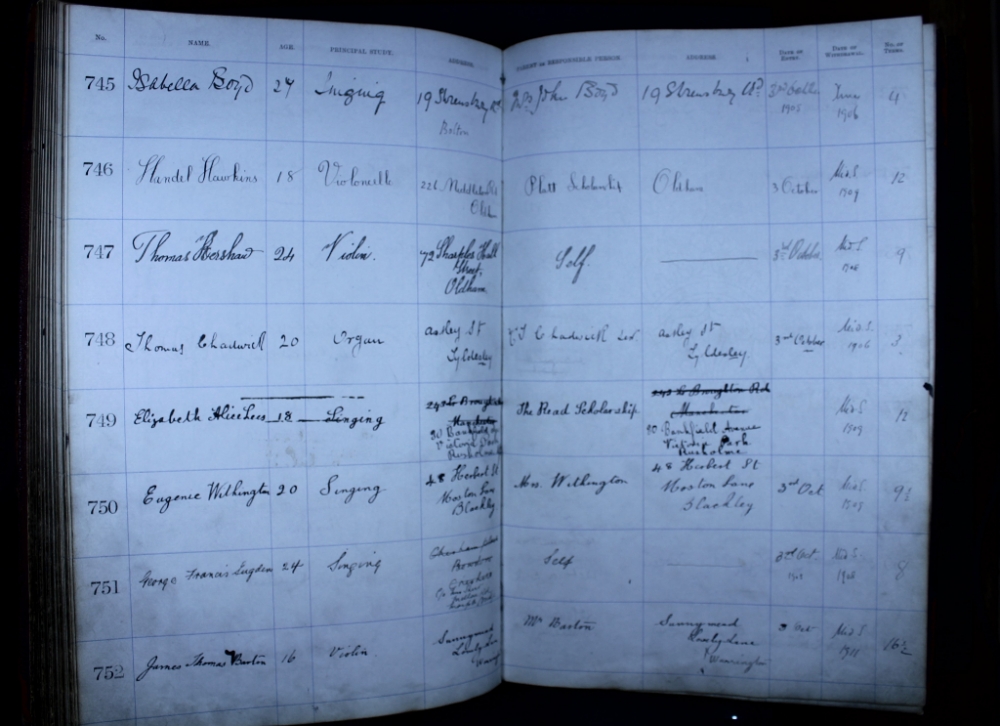 No. NAME. AGE. PRINCIPAL STUDY. ADDRESS. PARENT OR RESPONSIBLE PERSON. ADDRESS. DATE OF ENTRY. DATE OF WITHDRAWAL. No. OF TERMS.
745 Isabella Boyd 24 Singing 19 Shrewsbury Rd Mr John Boyd 19 Shrewsbury Rd 3rd June 4
Bolton 1905 1906
746 Handel Hawkins 18 Violoncello Platt Scholarship Oldham 3 October Mids 12
Oldham 1909
747 Thomas Kershaw 24 Violin. 72 Sharples Hall Self. 3rd October Mids 9
Street,
Oldham
748 Thomas Chadwick 20 Organ Astley St Chadwick Astley St 3rd October Mids 3
Tyldesley Tyldesley. 1906
749 Elizabeth Alice Lees 18 Singing The Read Scholarship. 243 Lr Broughton Rd Mids 12
Manchester 1909
30 Birchfield
Victoria Park
Rusholme
750 Eugenie Withington 20 Singing 48 Herbert St Mrs. Withington 48 Herbert St 3rd Oct Mids 9
Moston Lane Moston Lane
Blackley Blackley
751 George Francis Sugden 24 Singing Self 3rd Oct Mids 8
Bowdon 1908
752 James Thomas Barton 16 Violin Sunnymead Mr Barton Sunnymead 3 Oct Mids
Lane
Warrington